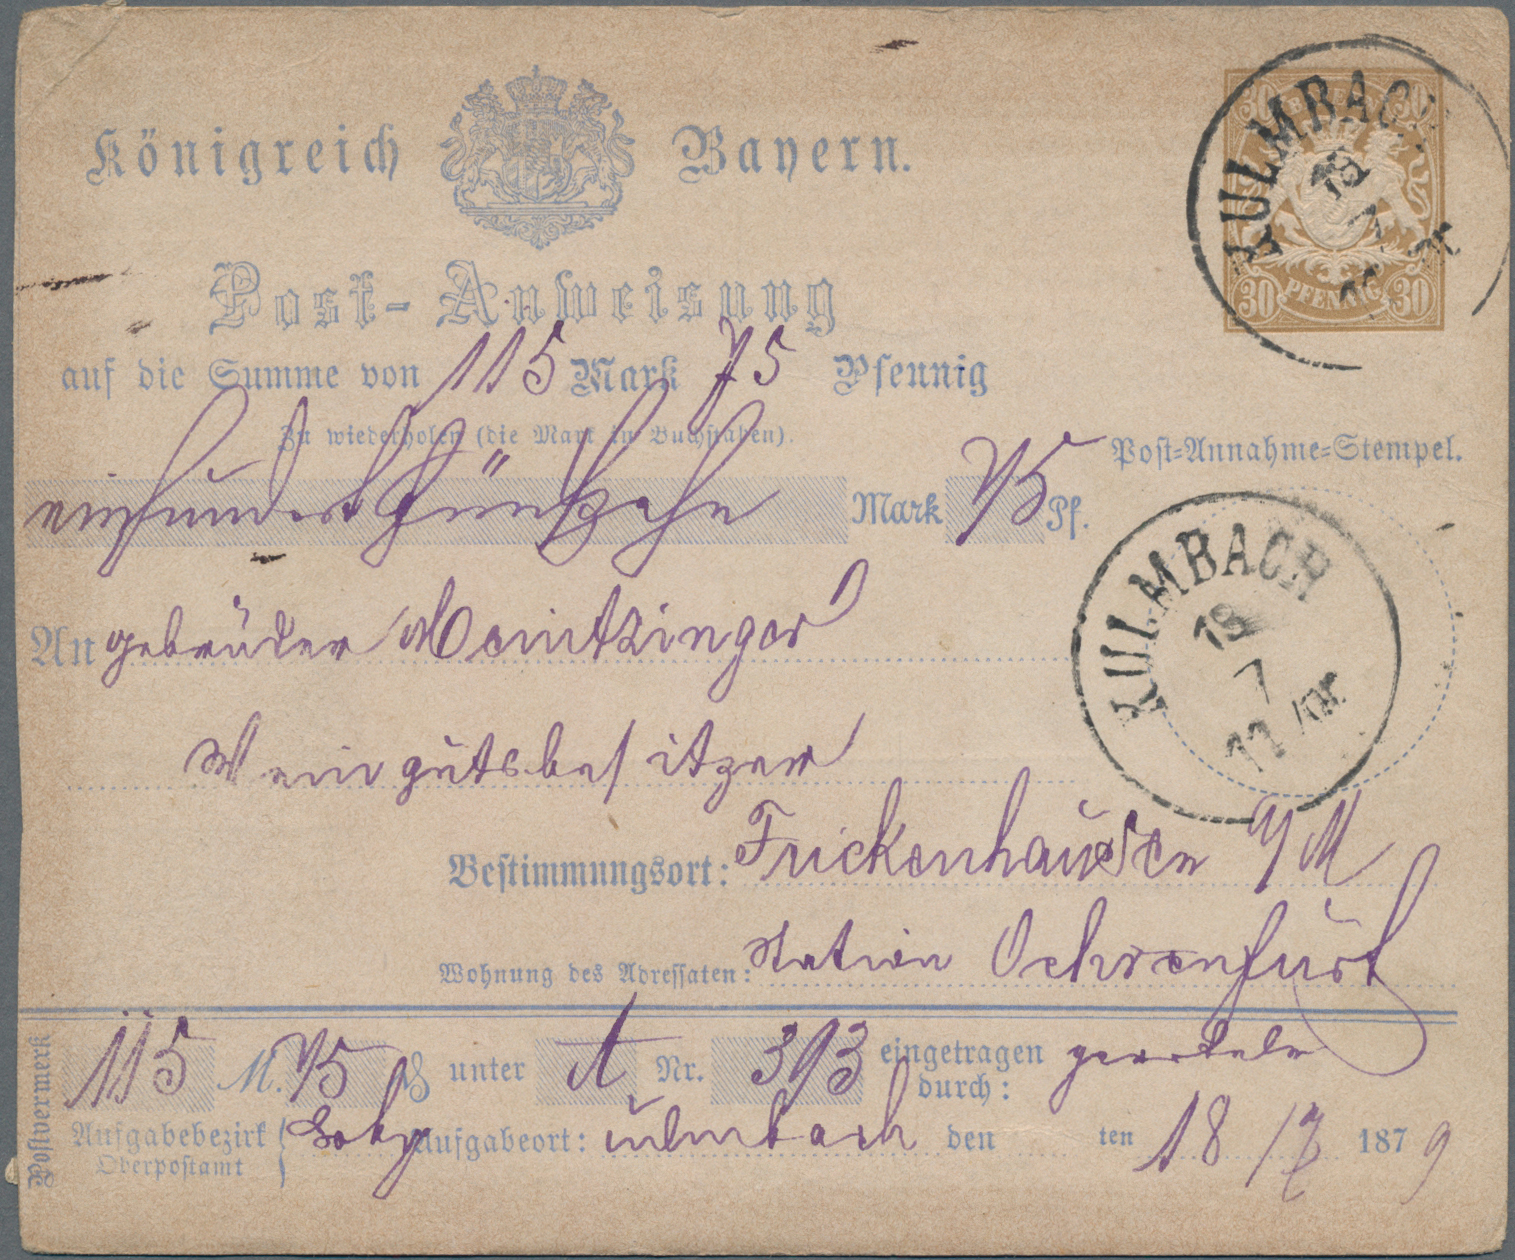 Königreich Bayern.
30 30
30 PFENNIG 30
KULMBACH
18
7
Post-Anweisung
auf die Summe von 115 Mark 75 Pfennig
Zu wiederholen (die Mark in Buchstaben).
Post-Annahme-Stempel.
einhundertfünfzehn Mark 75 Pf.
KULMBACH
18
7
An Gebrüder Meintzinger
Weingutsbesitzer
Bestimmungsort: Frickenhausen a/M
Wohnung des Adressaten: Station Ochsenfurt
Postvermerk
115 M. 75 ₰ unter A Nr. 393 eingetragen durch:
Aufgabebezirk Oberpostamt { Aufgabeort: Culmbach den ten 18/7 1879